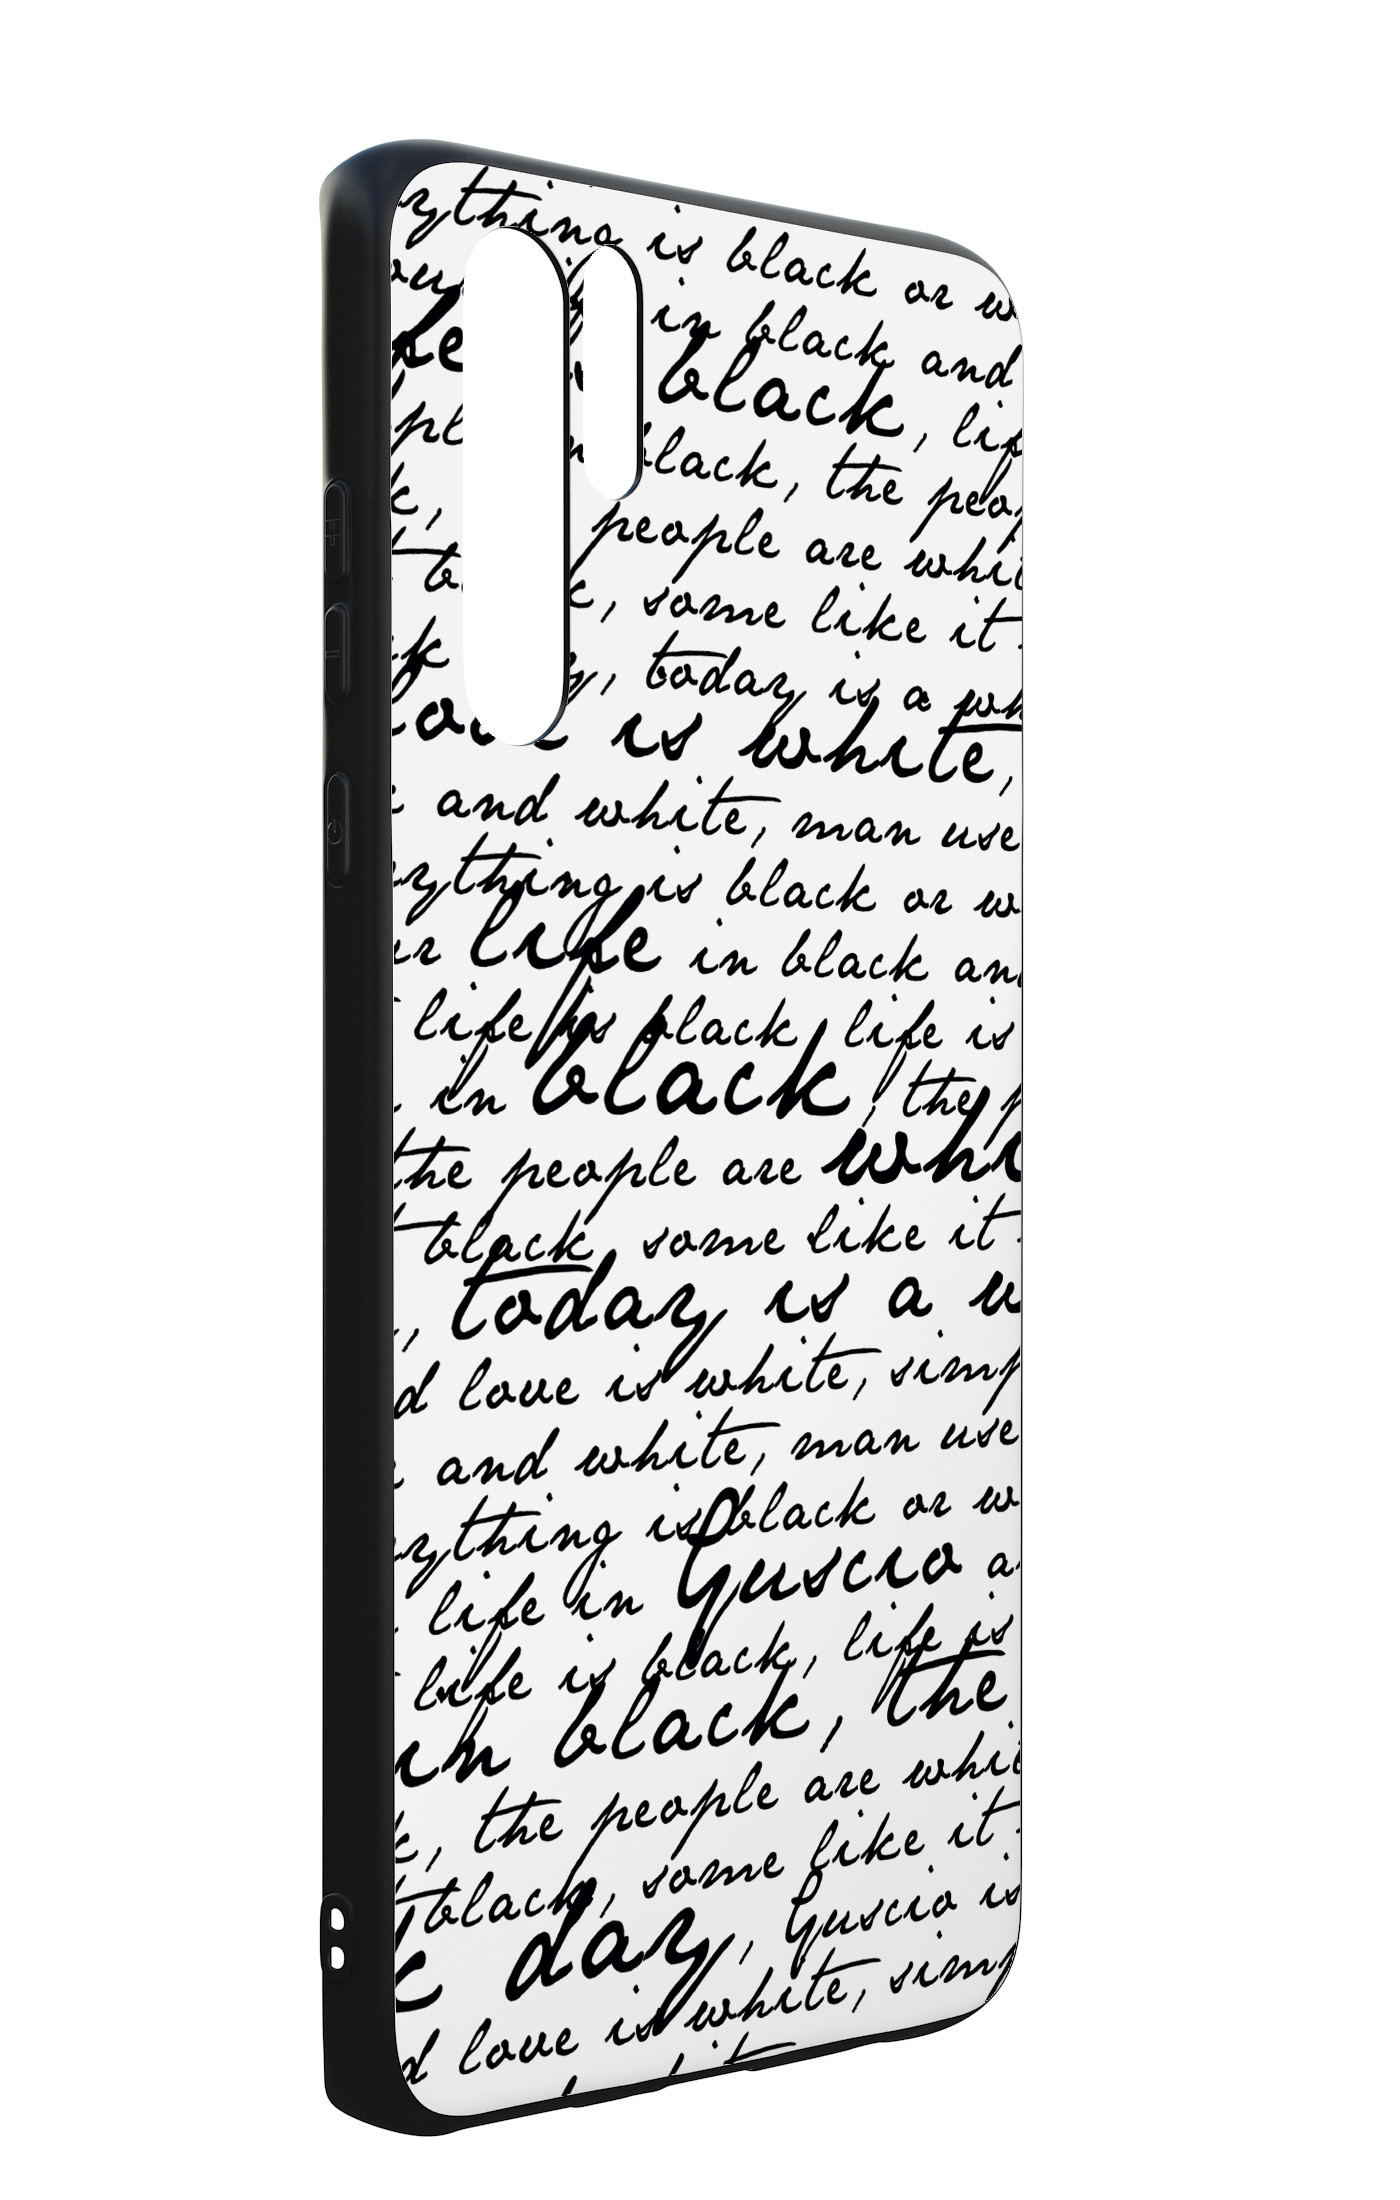 ything is black or w
ou in black and
fe black, lif
pl n black, the peop
k, people are whi
t bl k, some like it
k y, today is a wh
love is white,
and white, man use
ything is black or w
ur life in black an
life is black life is
in black, the p
the people are whi
t black, some like it
, today is a w
d love is white, simp
and white, man use
ything is black or w
life in Guscio a
life is black, life is
in black, the
k, the people are whi
t black, some like it
k day, Guscio is
d love is white, simp